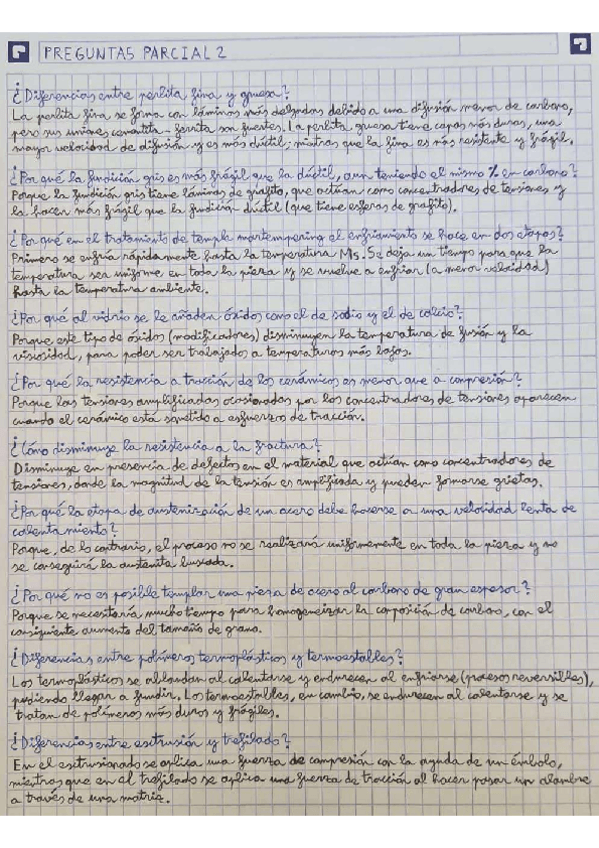 PREGUNTAS PARCIAL 2
¿Diferencias entre perlita fina y gruesa?
La perlita fina se forma con láminas más delgadas debido a una difusión menor de carbono,
pero sus uniones cementita - ferrita son fuertes. La perlita gruesa tiene capas más duras, una
mayor velocidad de difusión y es más dúctil; mientras que la fina es más resistente y frágil.
¿Por qué la fundición gris es más frágil que la dúctil, aun teniendo el mismo % en carbono?
Porque la fundición gris tiene láminas de grafito, que actúan como concentradores de tensiones y
la hacen más frágil que la fundición dúctil (que tiene esferas de grafito).
¿Por qué en el tratamiento de temple martempering el enfriamiento se hace en dos etapas?
Primero se enfría rápidamente hasta la temperatura Ms. Se deja un tiempo para que la
temperatura sea uniforme en toda la pieza y se vuelve a enfriar (a menor velocidad)
hasta la temperatura ambiente.
¿Por qué al vidrio se le añaden óxidos como el de sodio y el de calcio?
Porque este tipo de óxidos (modificadores) disminuyen la temperatura de fusión y la
viscosidad, para poder ser trabajados a temperaturas más bajas.
¿Por qué la resistencia a tracción de los cerámicos es menor que a compresión?
Porque las tensiones amplificadas ocasionadas por los concentradores de tensiones aparecen
cuando el cerámico está sometido a esfuerzos de tracción.
¿Cómo disminuye la resistencia a la fractura?
Disminuye en presencia de defectos en el material que actúan como concentradores de
tensiones, donde la magnitud de la tensión es amplificada y pueden formarse grietas.
¿Por qué la etapa de austenización de un acero debe hacerse a una velocidad lenta de
calentamiento?
Porque, de lo contrario, el proceso no se realizará uniformemente en toda la pieza y no
se conseguirá la austenita buscada.
¿Por qué no es posible templar una pieza de acero al carbono de gran espesor?
Porque se necesitaría mucho tiempo para homogeneizar la composición de carbono, con el
consiguiente aumento del tamaño de grano.
¿Diferencias entre polímeros termoplásticos y termoestables?
Los termoplásticos se ablandan al calentarse y endurecen al enfriarse (procesos reversibles),
pudiendo llegar a fundir. Los termoestables, en cambio, se endurecen al calentarse y se
tratan de polímeros más duros y frágiles.
¿Diferencias entre extrusión y trefilado?
En el extrusionado se aplica una fuerza de compresión con la ayuda de un émbolo,
mientras que en el trefilado se aplica una fuerza de tracción al hacer pasar un alambre
a través de una matriz.